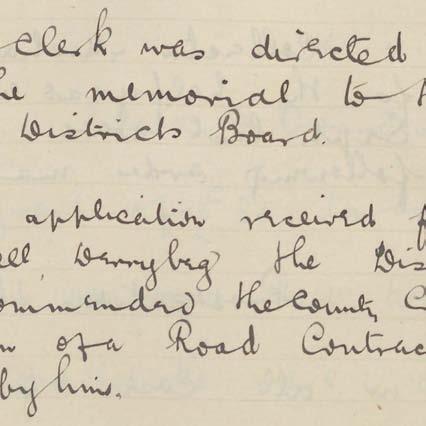 clerk was directed
he memorial to
Districts Board.
application received f
ell, Derrybeg the Dis
ommended the County C
n of a Road Contrac
by him.